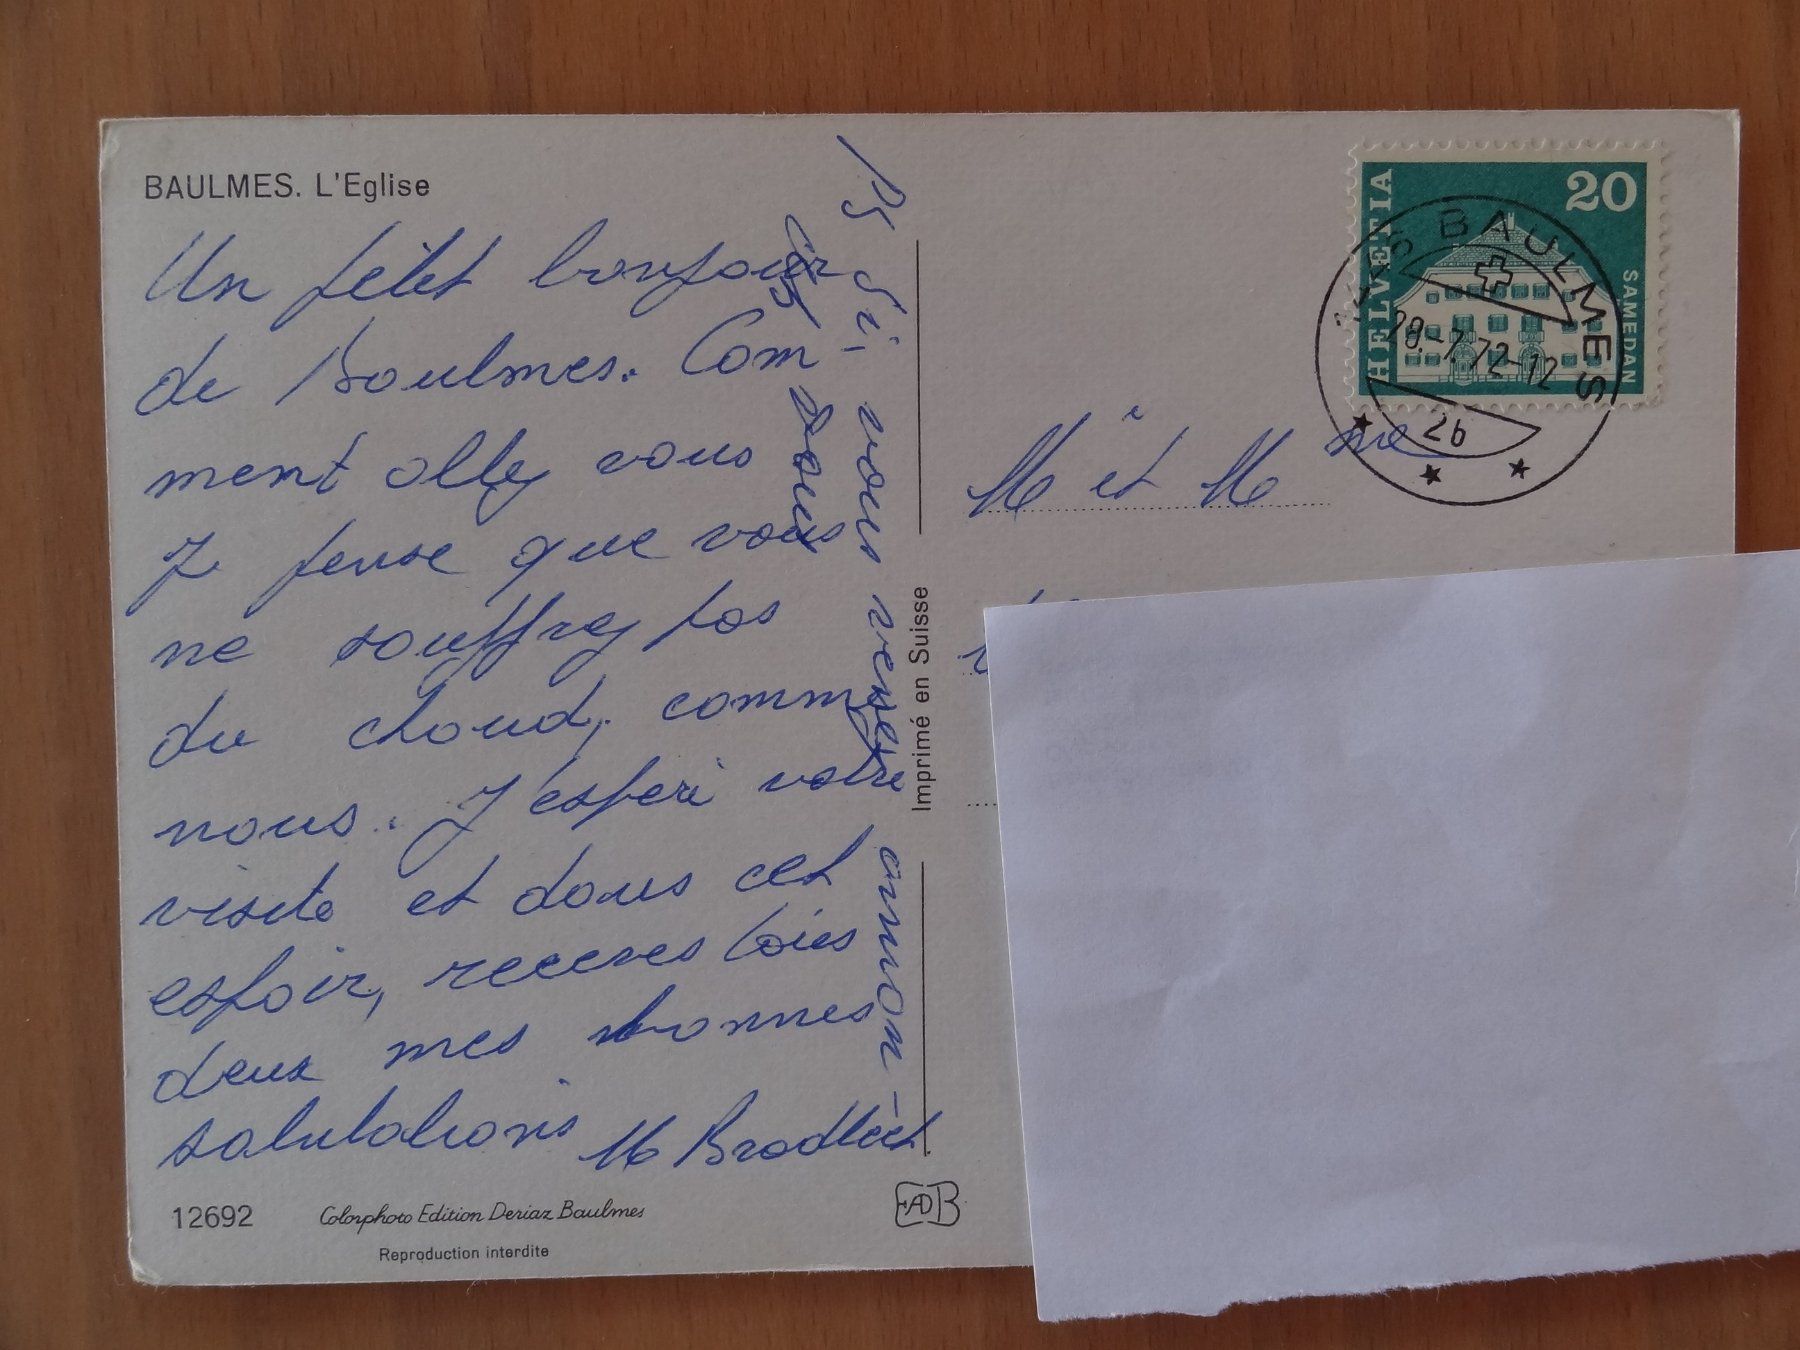 BAULMES. L'Eglise
Un petit bonjour
de Baulmes. Com-
ment allez vous
Je pense que vous
ne souffrez pas
du chaud, comme
nous. J'espère votre
visite et dans cet
espoir, receves toies
deux mes bonnes
salutations M
PS Si vous venes annon-
ces vous
12692
Colorphoto Edition Deriaz Baulmes
Reproduction interdite
Imprimé en Suisse
EADB
HELVETIA
20
SAMEDAN
BAULMES
28.-7.72-12
2b
M et Mme